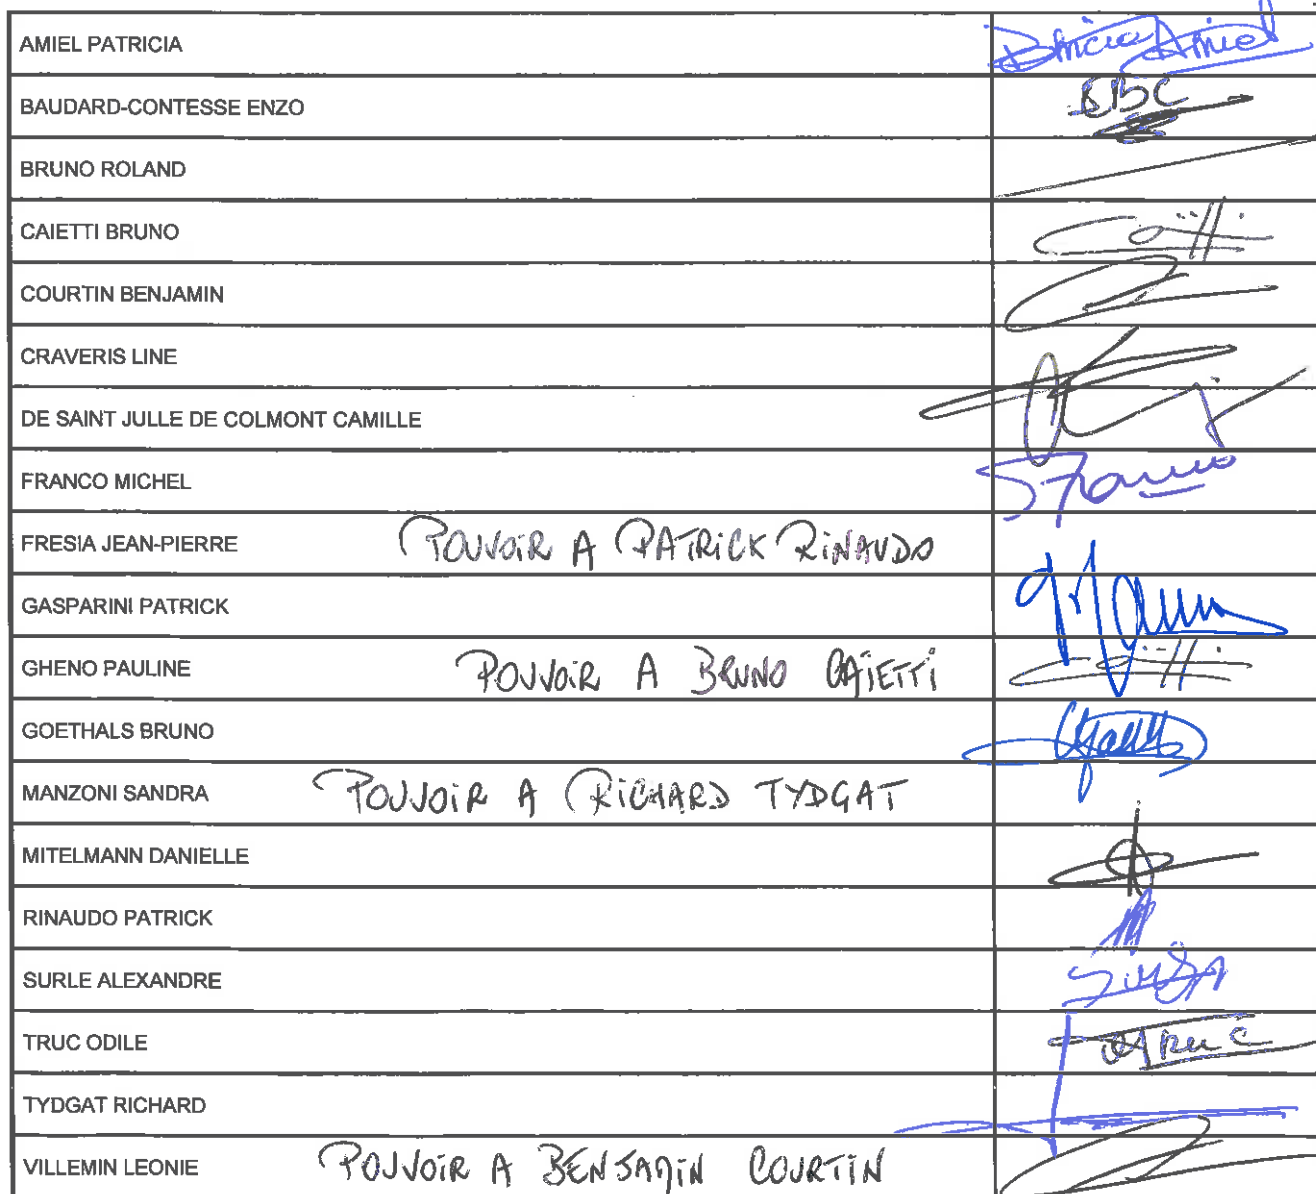 AMIEL PATRICIA Patricia Amiel
BAUDARD-CONTESSE ENZO EBC
BRUNO ROLAND
CAIETTI BRUNO
COURTIN BENJAMIN
CRAVERIS LINE
DE SAINT JULLE DE COLMONT CAMILLE
FRANCO MICHEL
FRESIA JEAN-PIERRE POUVOIR A PATRICK RINAUDO
GASPARINI PATRICK
GHENO PAULINE POUVOIR A BRUNO CAIETTI
GOETHALS BRUNO
MANZONI SANDRA POUVOIR A RICHARD TYDGAT
MITELMANN DANIELLE
RINAUDO PATRICK
SURLE ALEXANDRE
TRUC ODILE
TYDGAT RICHARD
VILLEMIN LEONIE POUVOIR A BENJAMIN COURTIN